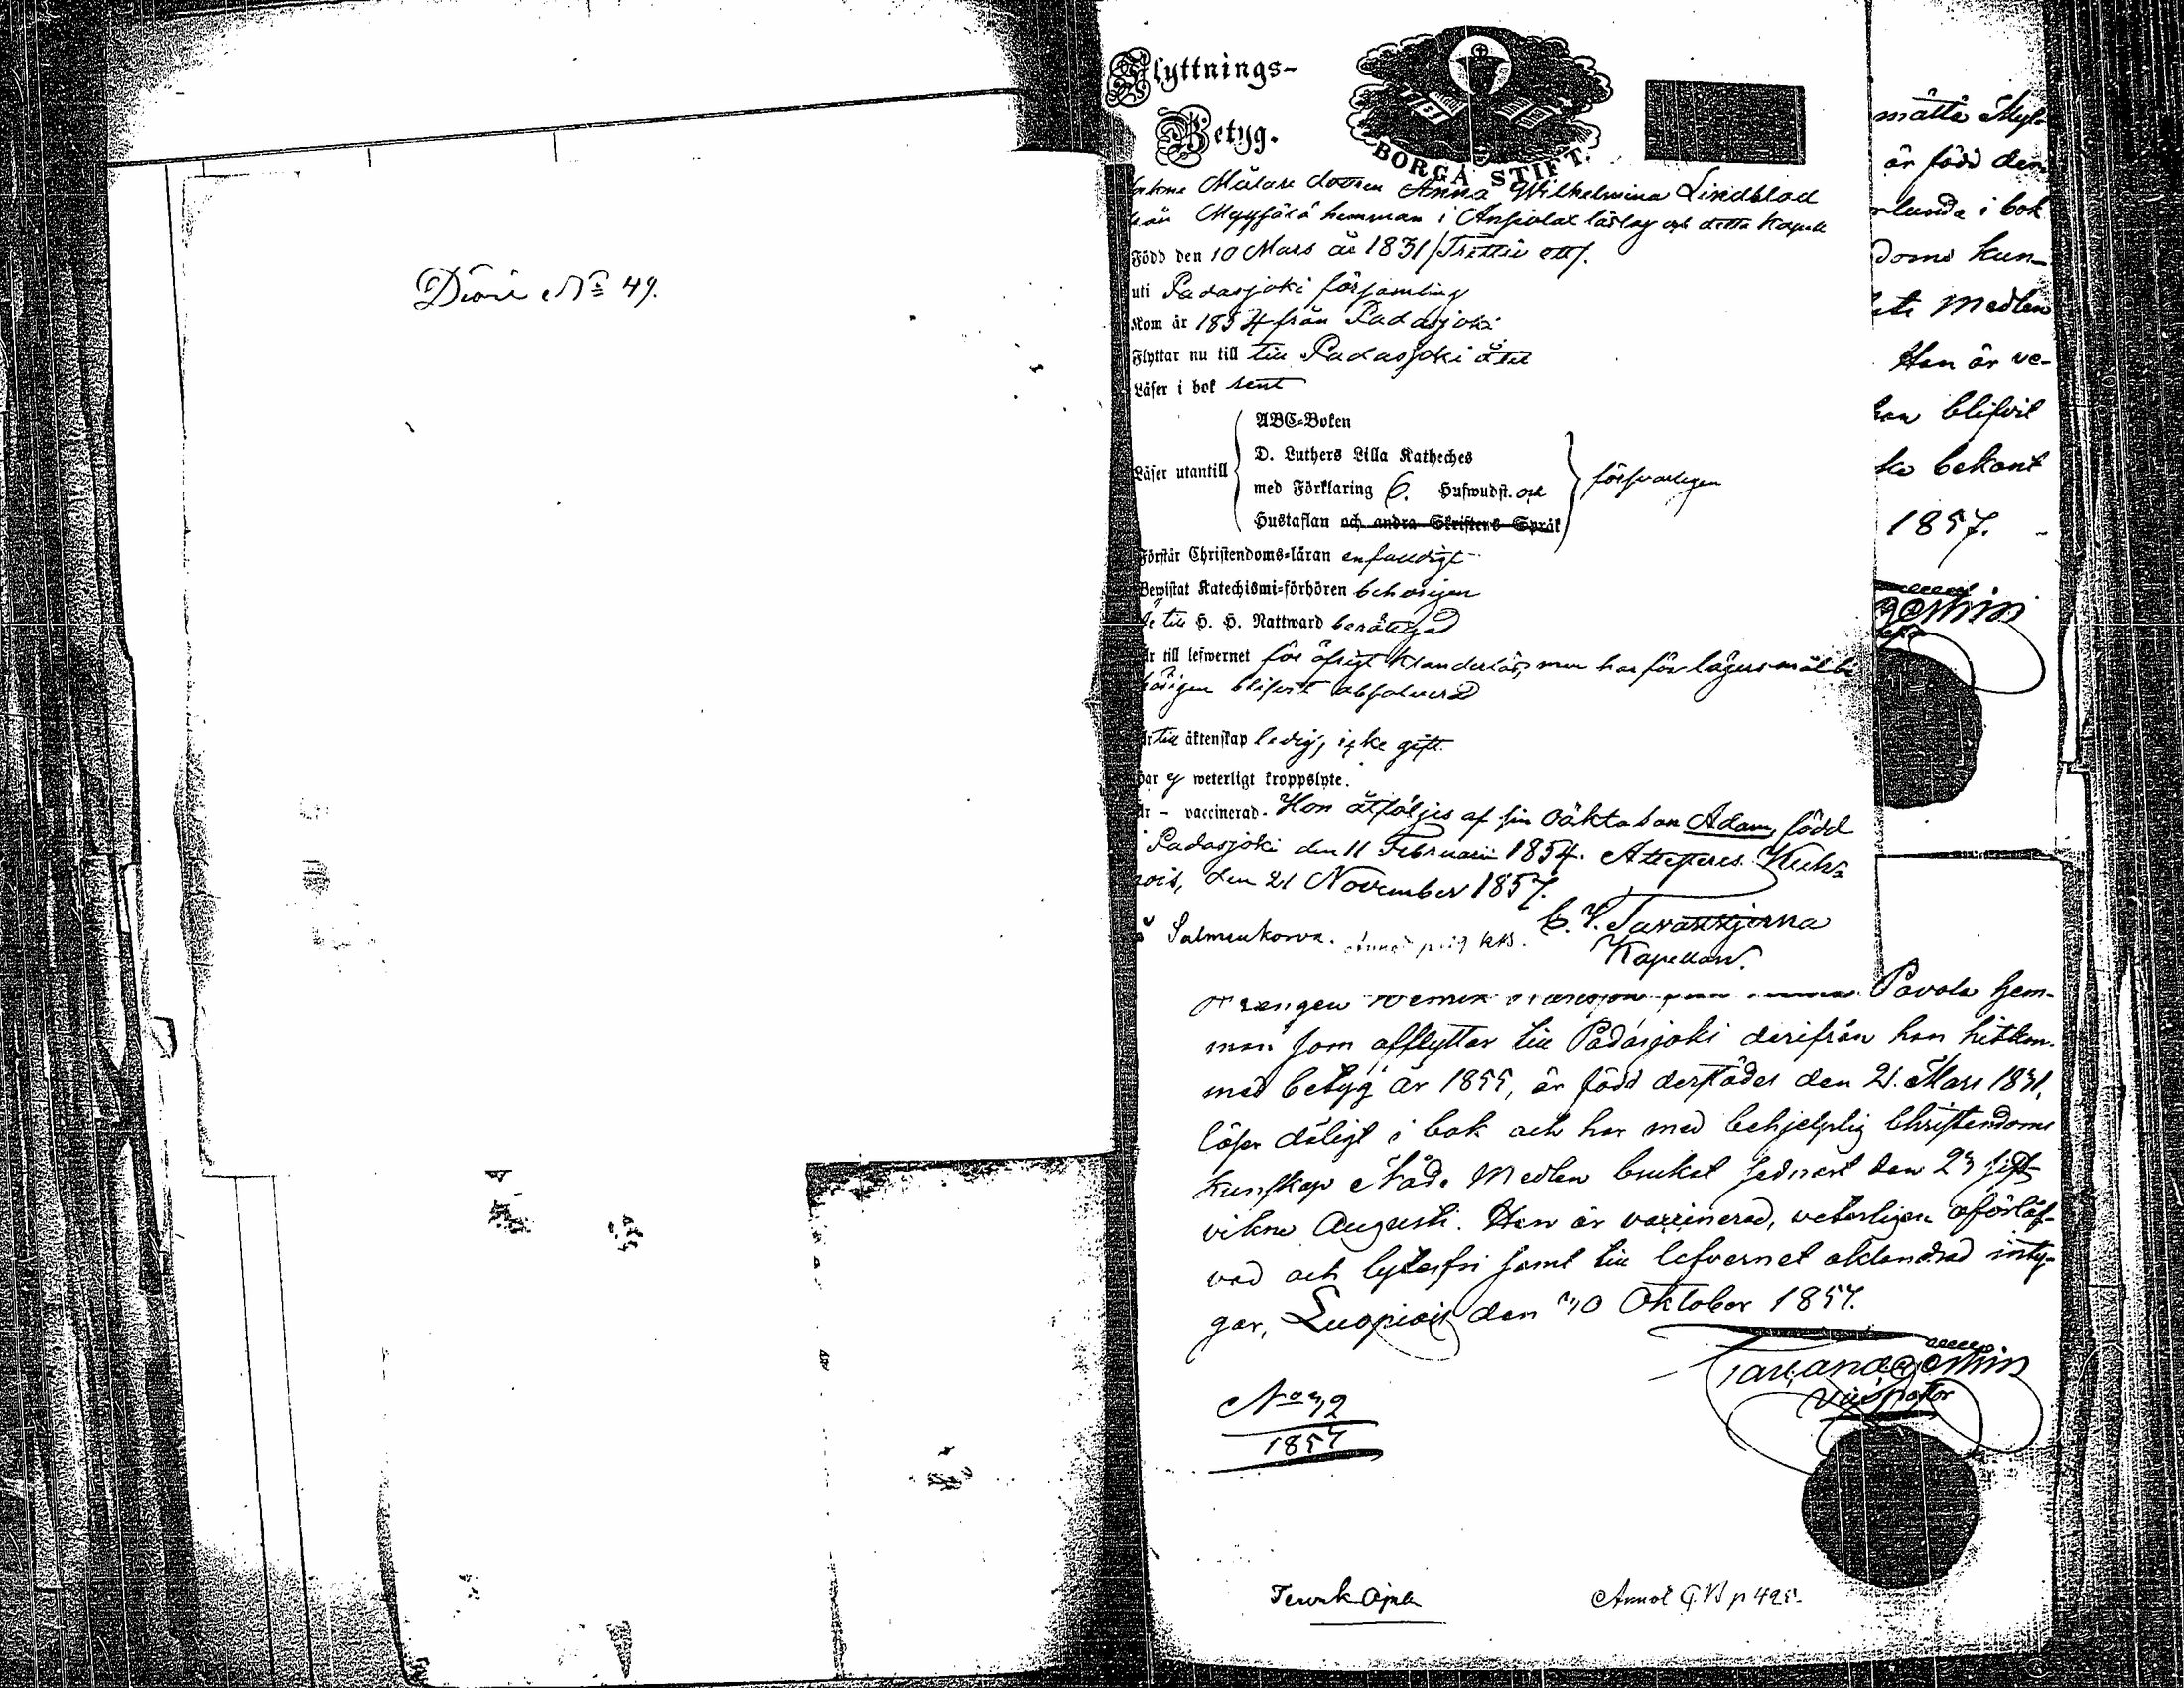 Diarii No 49.
Flyttnings-
Betyg.
BORGÅ STIFT.
Målare dottren Anna Wilhelmina Lindblad
hemman i detta Kapell
Född den 10 Mars år 1831 / Trettio ett /.
uti Padasjoki församling
Kom år 1854 från Padasjoki
Flyttar nu till till Padasjoki åter
Läser i bok rent
Läser utantill
ABC-Boken
D. Luthers Lilla Katheches
med Förklaring 6. Hufwudst. och
Hustaflan och andra Skriftens Språk
försvarligen
Förstår Christendoms-läran enfaldigt
Bewistat Katechismi-förhören behörigen
Är till H. H. Nattward berättigad
Är till lefwernet för öfrigt klanderlös, men har för lägersmål be-
hörigen blifvit absolverad
Är till äktenskap ledig, icke gift.
Har ej weterligt kroppslyte.
Är - vaccinerad. Hon åtföljes af sin oäkta son Adam, född
i Padasjoki den 11 Februarii 1854. Attesteras. Kuhm-
ois, den 21 November 1857.
Salmenkorva.
Kapellan.
Drengen Henrik Pavola hem-
man som afflyttar till Padasjoki derifrån han hitkom
med betyg år 1855, är född derstädes den 21. Mars 1831,
läser dåligt i bok och har med behjelplig Christendoms
kunskap Nåde Medlen brukat sednast den 23 sist-
vikne Augusti. Han är vaccinerad, veterligen oförlof-
vad och lytesfri samt till lefvernet oklandrad inty-
gar, Luopiois den 30 Oktober 1857.
Vice pastor
No 32
1857
Annot p 425.
är född den
i bok
doms kun-
Medlen
Han är ve-
han blifvit
bekant
1857.